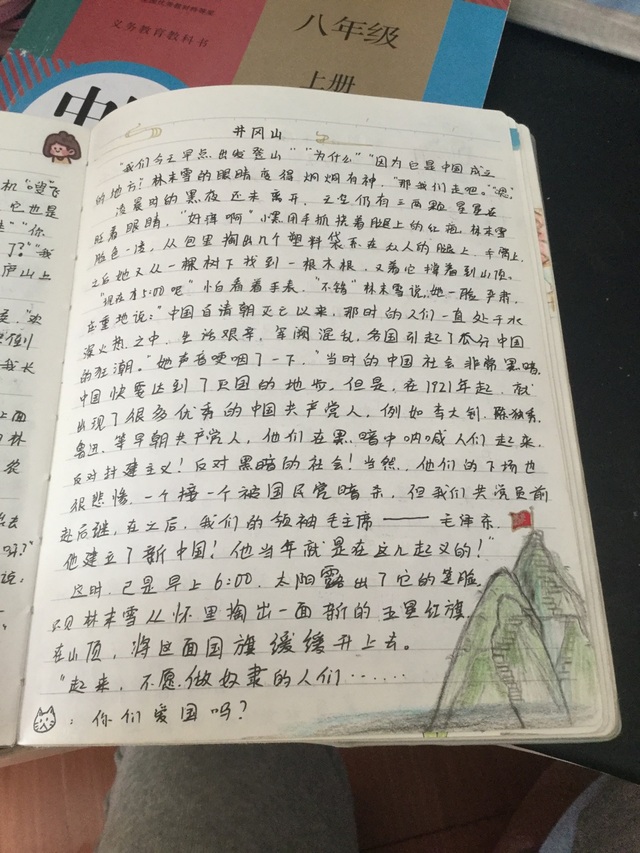 义务教育教科书
八年级
上册
中
井冈山
"我们今天早点出发登山" "为什么" "因为它是中国成立
的地方!林未雪的眼睛变得炯炯有神,"那我们走吧。"
凌晨时的黑夜还未离开,天空仍有三两颗星星在
眨着眼睛,"好痒啊"小黑用手抓挠着腿上的红疱,林未雪
脸色一沉,从包里掏出几个塑料袋系在众人的腿上、手臂上,
之后她又从一棵树下找到一根木棍,又着它撑着到山顶。
"现在才5:00吧"小白看着手表,"不错"林未雪说,她一脸严肃,
庄重地说:"中国自清朝灭亡以来,那时的人们一直处于水
深火热之中,生活艰辛,军阀混乱,各国引起了瓜分中国
的狂潮。"她声音哽咽了一下,"当时的中国社会非常黑暗,
中国快要达到了灭国的地步,但是,在1921年起,就
出现了很多优秀的中国共产党人,例如李大钊、陈独秀、
鲁迅、等早期共产党人,他们在黑暗中呐喊人们起来,
反对封建主义!反对黑暗的社会!当然,他们的下场也
很悲惨,一个接一个被国民党暗杀,但我们共党员前
赴后继,在之后,我们的领袖毛主席——毛泽东,
他建立了新中国!他当年就是在这儿起义的!"
这时,已是早上6:00,太阳露出了它的笑脸,
只见林未雪从怀里掏出一面新的五星红旗,
在山顶,将这面国旗缓缓升上去。
"起来,不愿做奴隶的人们……
:你们爱国吗?
机"嗖"飞
它也是
"你
了?""我
庐山上
欢
我长
上面
林
说,